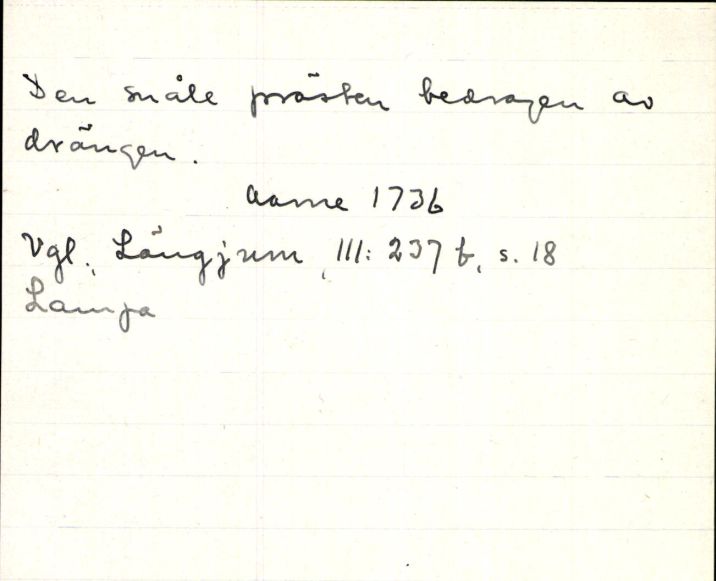 Den snåle prästen bedragen av
drängen.
Aarne 1736
Vgl. Långjum, III: 237 b, s. 18
Lampa